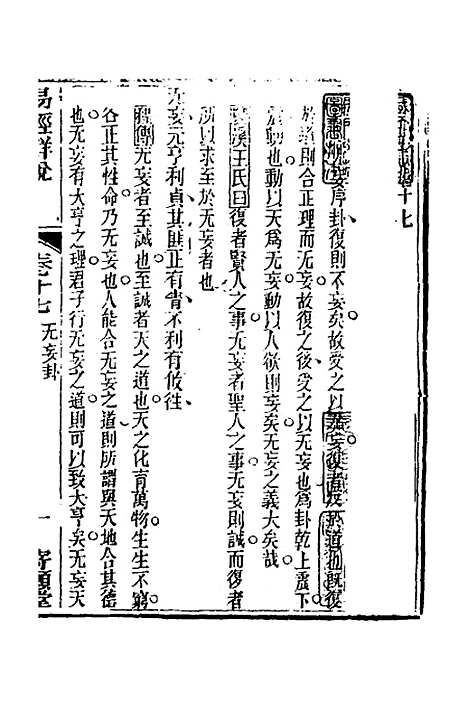 十七
序卦復則不妄矣故受之以无妄復者反於道也既復
於道則合正理而无妄故復之後受之以无妄也為卦乾上震下
震動也動以天為无妄動以人欲則妄矣无妄之義大矣哉
王氏曰復者賢人之事无妄者聖人之事无妄則誠而復者
所以求至於无妄者也
无妄元亨利貞其匪正有眚不利有攸往
程傳无妄者至誠也至誠者天之道也天之化育萬物生生不窮
各正其性命乃无妄也人能合无妄之道則所謂與天地合其德
也无妄有大亨之理君子行无妄之道則可以致大亨矣无妄天
易經詳說
卷十七 无妄卦
一
寄願堂